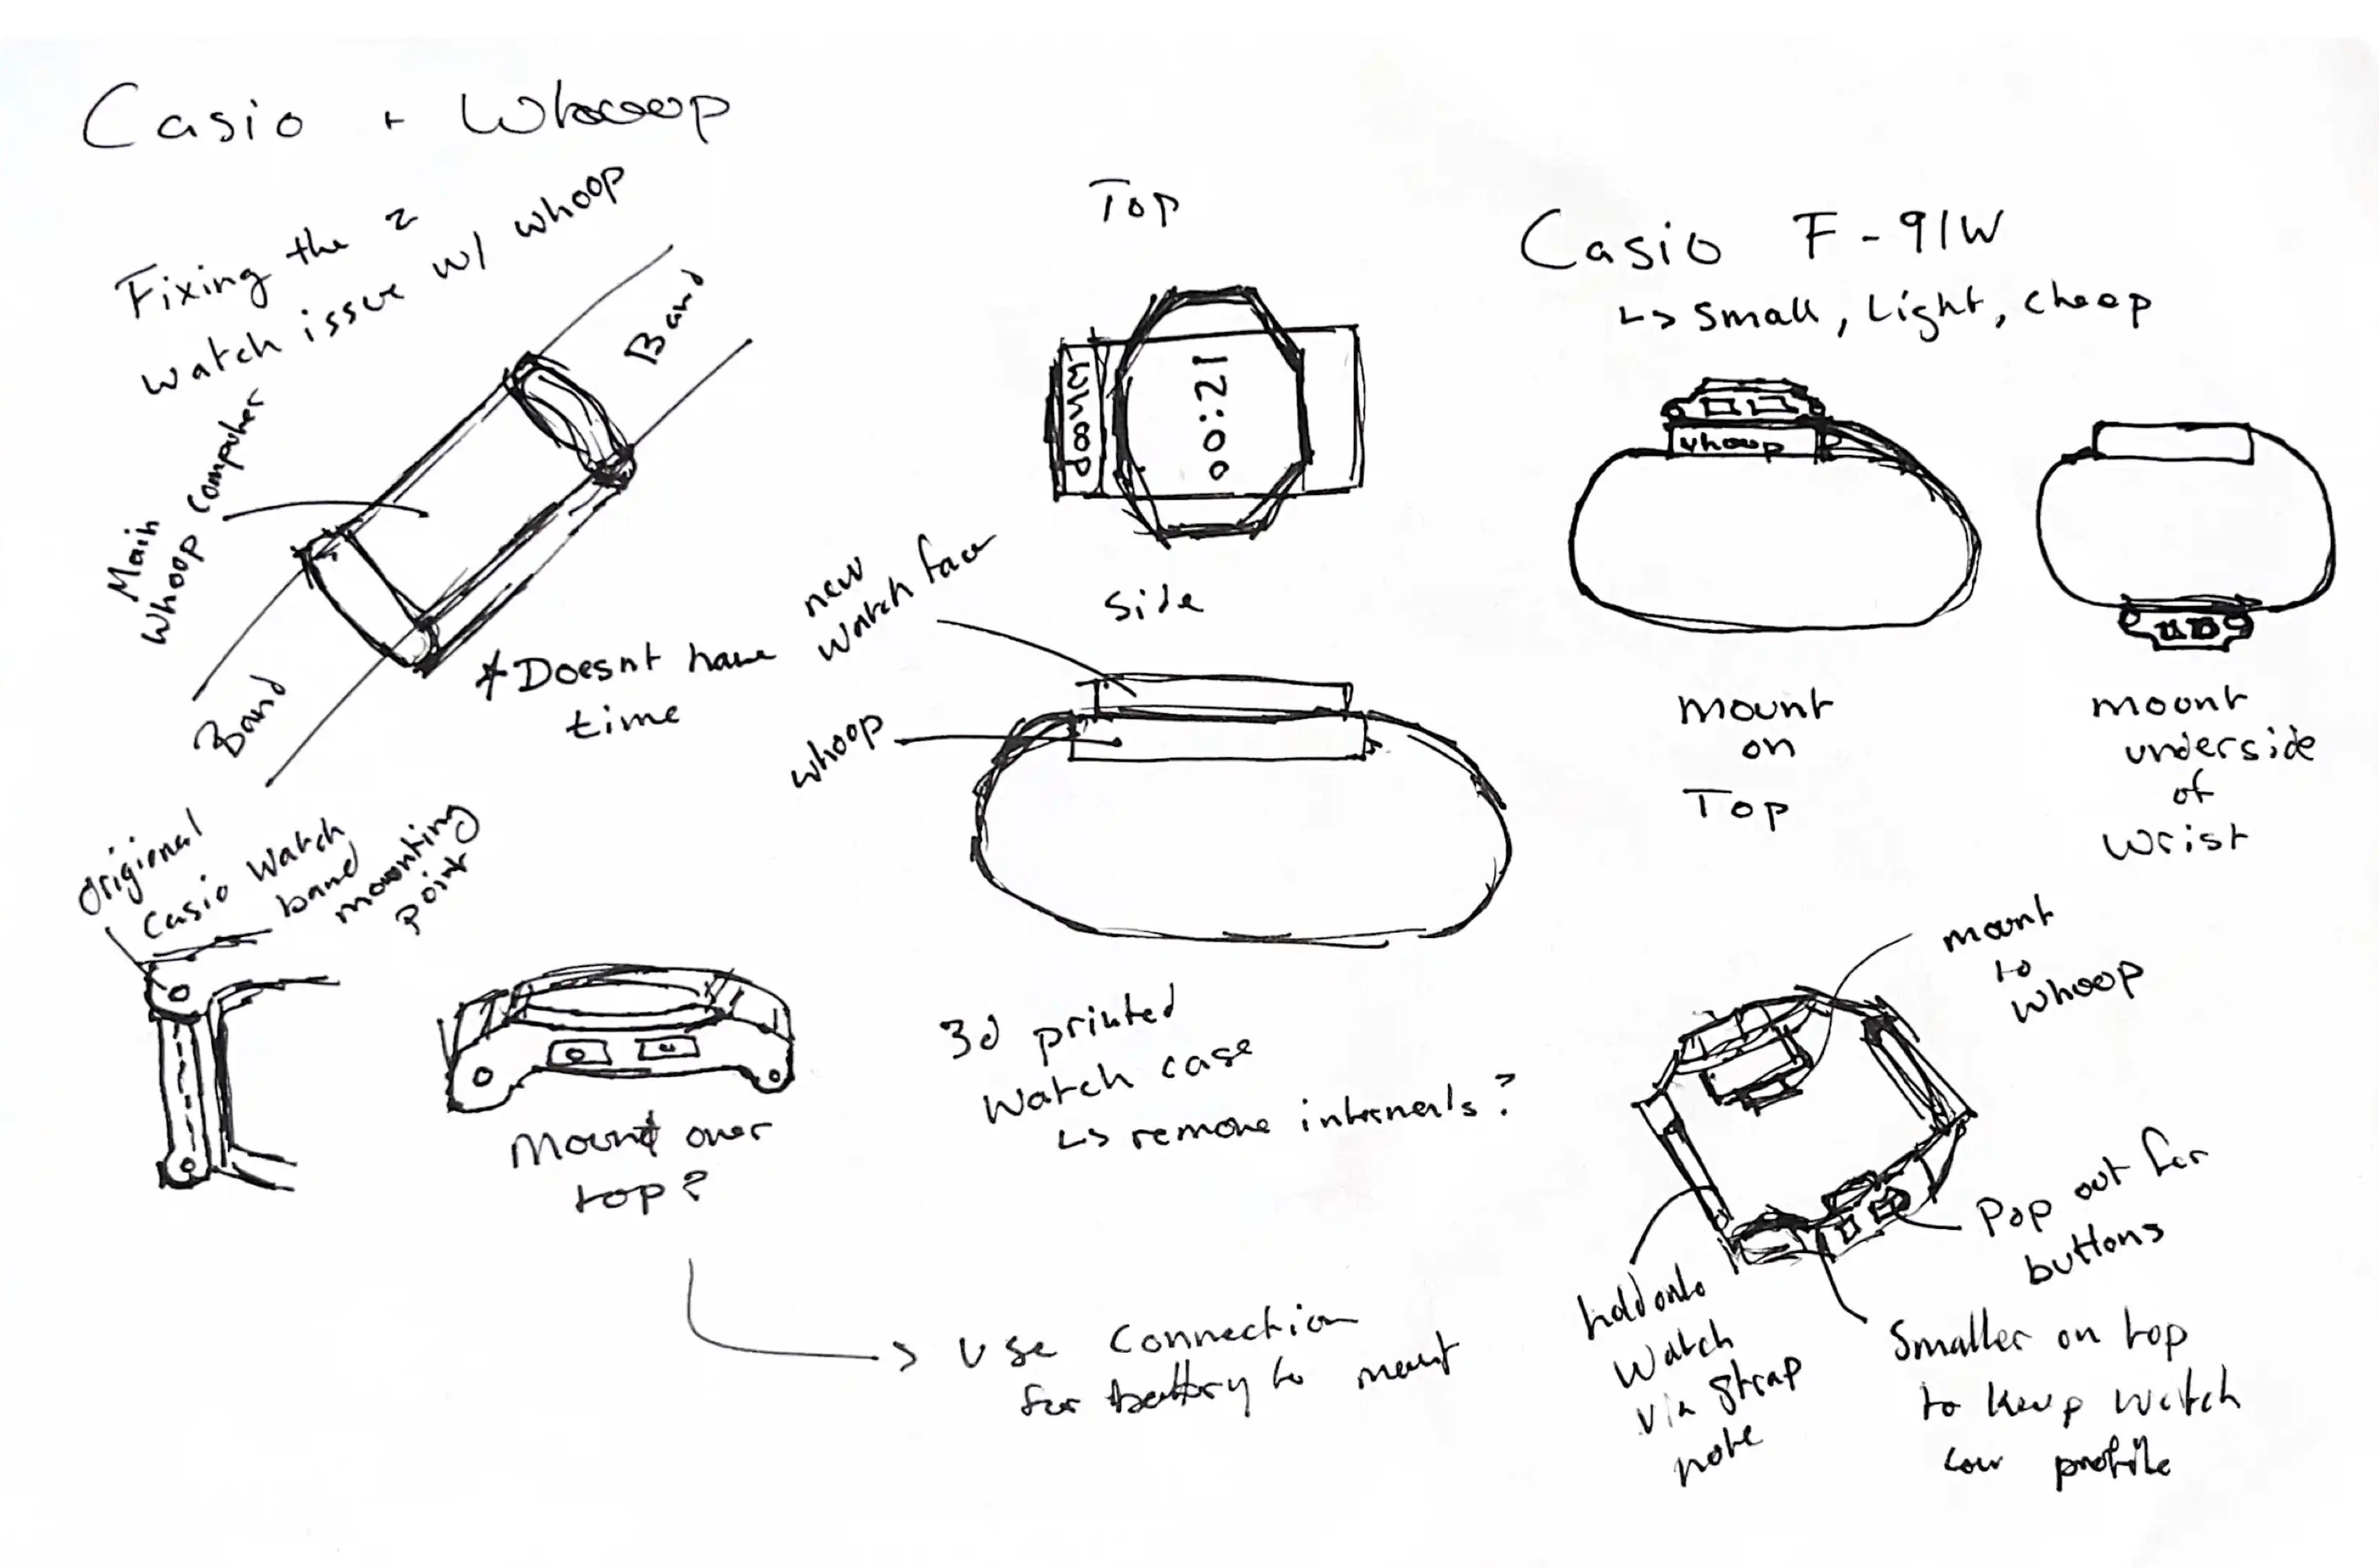 Casio + Whoop
Fixing the 2
watch issue w/ whoop
Band
Main
Whoop Computer
Band
* Doesnt have
time
Top
WHOOP
12:00
Side
new
watch face
whoop
Casio F-91W
↳ small, Light, cheap
whoop
mount
on
Top
mount
underside
of
wrist
Origional
Casio Watch
band
mounting
point
Mount over
top?
3d printed
Watch case
↳ remove internals?
→ Use Connection
for battery to mount
mount
to
whoop
Pop out for
buttons
hold onto
Watch
via strap
Smaller on top
to keep watch
low profile